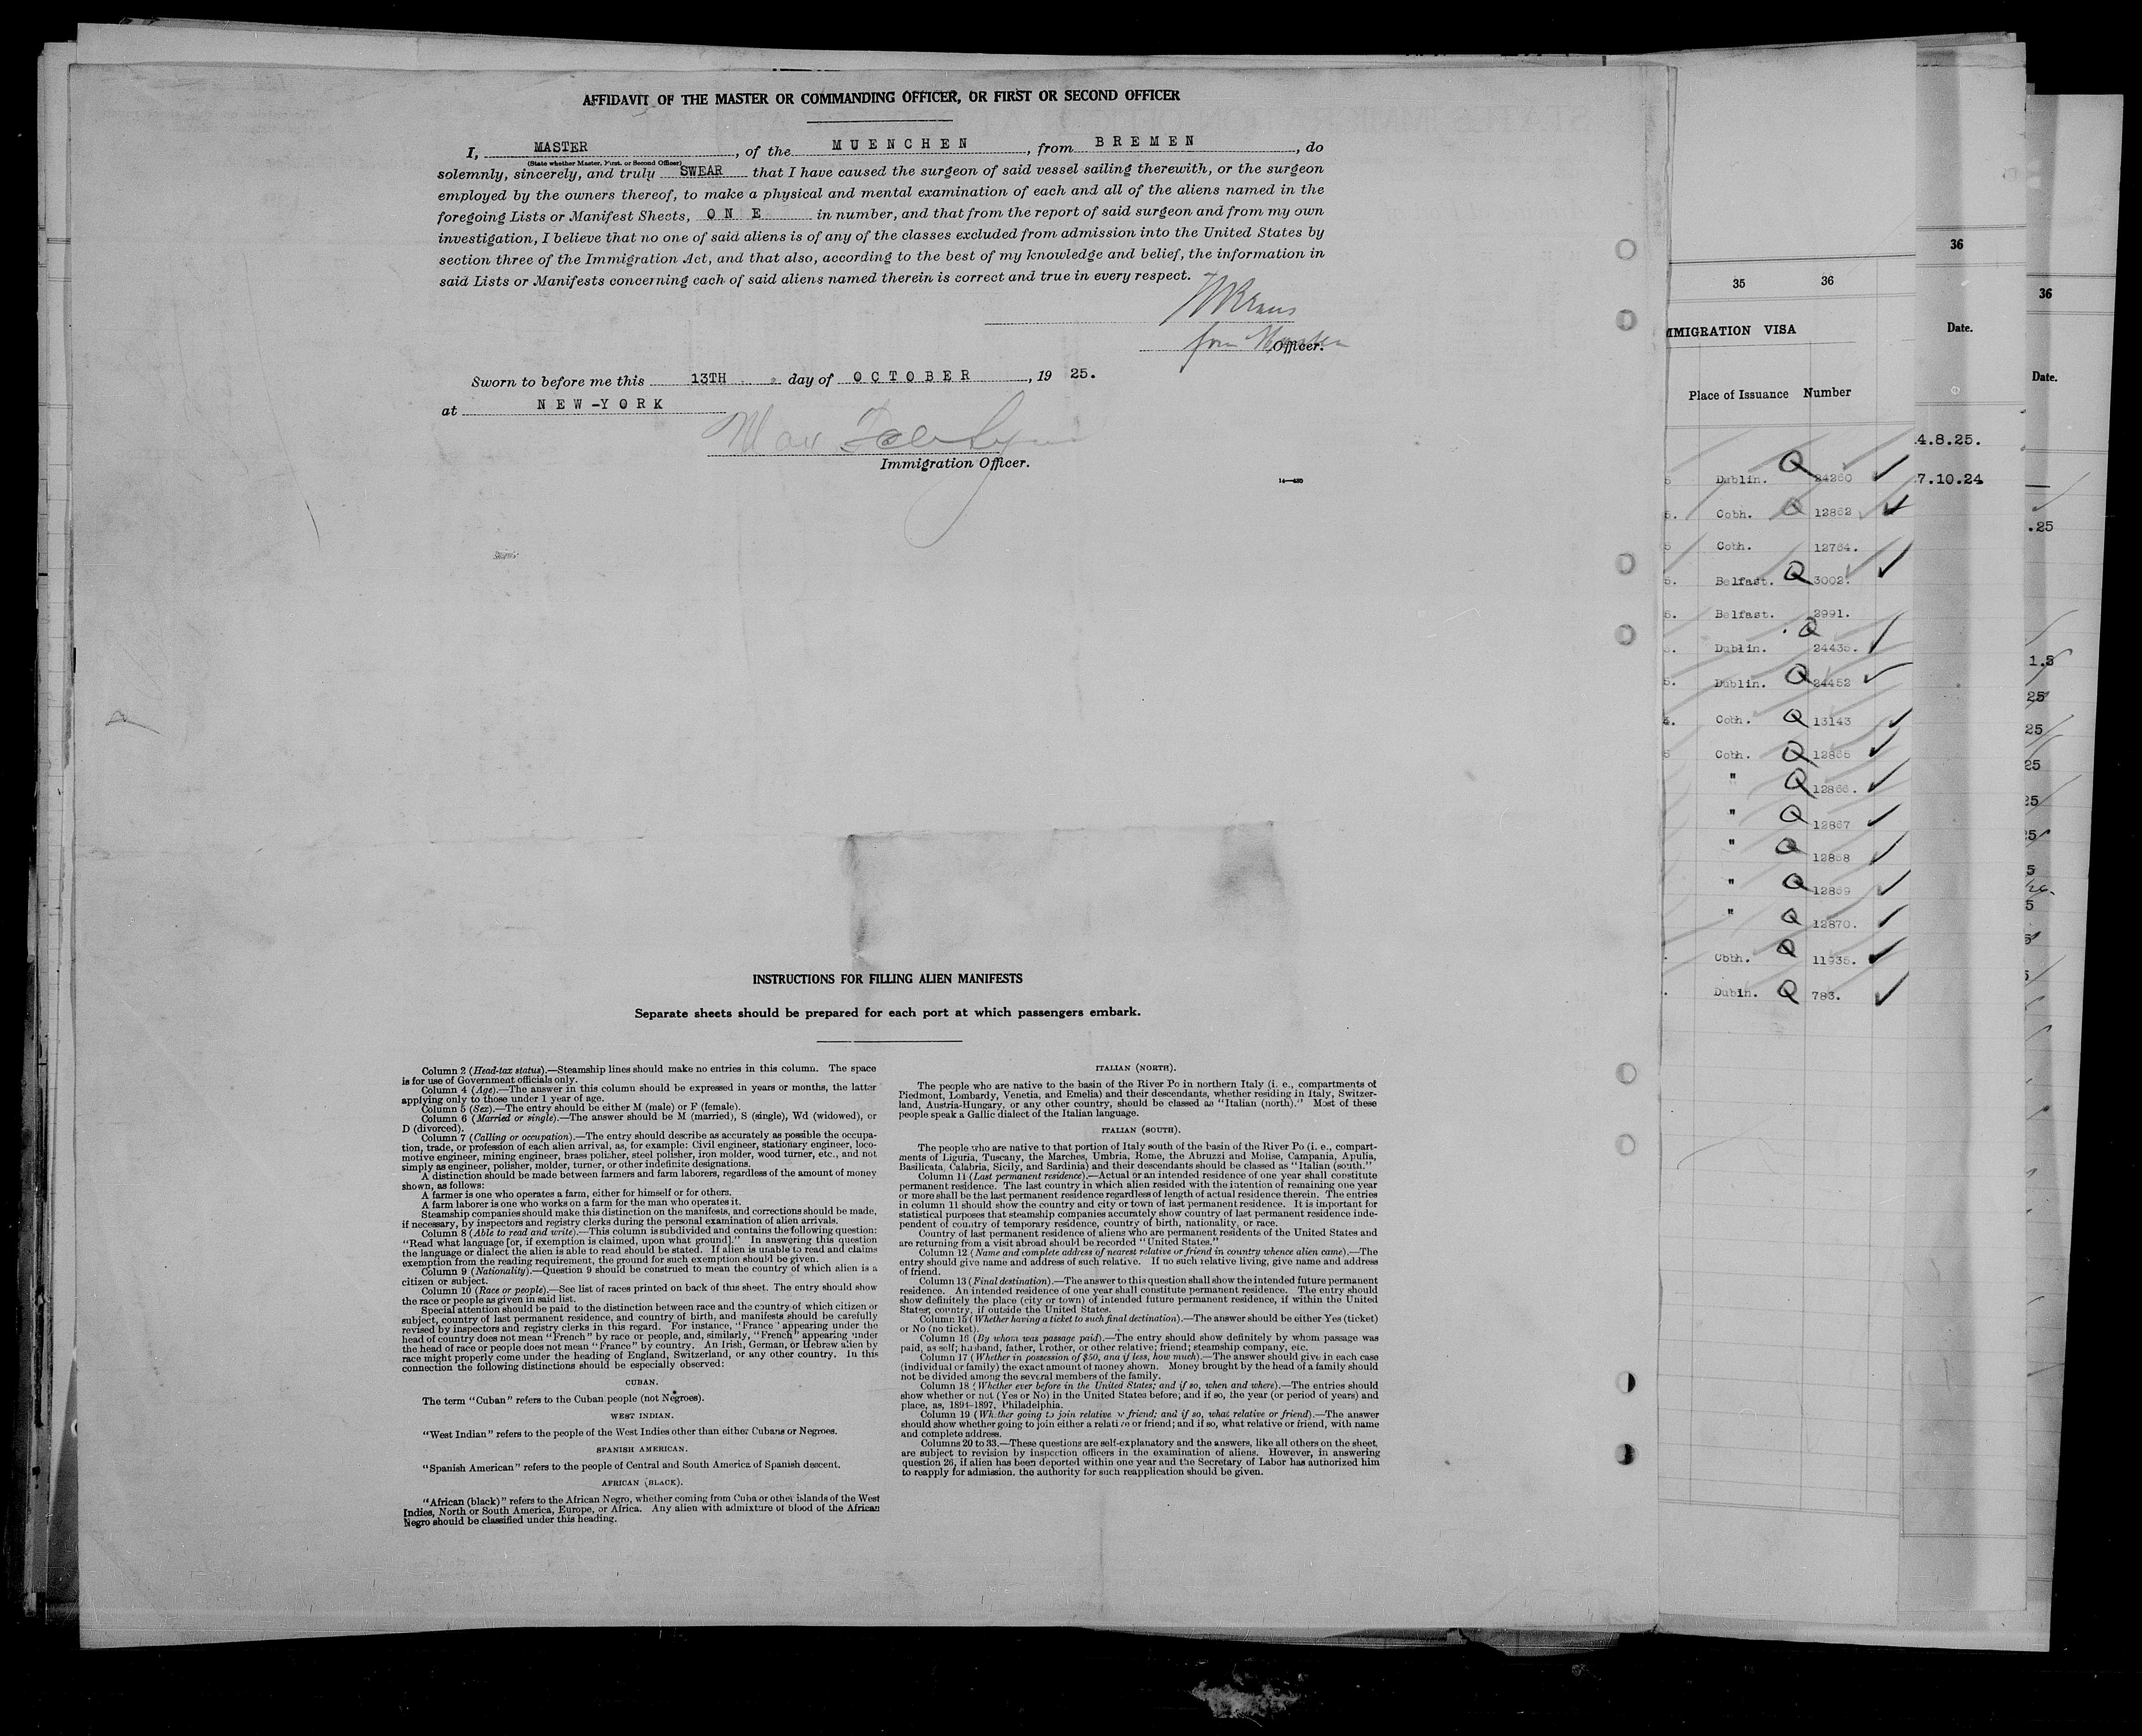 AFFIDAVIT OF THE MASTER OR COMMANDING OFFICER, OR FIRST OR SECOND OFFICER
I, MASTER, of the MUENCHEN, from BREMEN, do
(State whether Master, First, or Second Officer)
solemnly, sincerely, and truly SWEAR that I have caused the surgeon of said vessel sailing therewith, or the surgeon
employed by the owners thereof, to make a physical and mental examination of each and all of the aliens named in the
foregoing Lists or Manifest Sheets, ONE in number, and that from the report of said surgeon and from my own
investigation, I believe that no one of said aliens is of any of the classes excluded from admission into the United States by
section three of the Immigration Act, and that also, according to the best of my knowledge and belief, the information in
said Lists or Manifests concerning each of said aliens named therein is correct and true in every respect.
Officer.
Sworn to before me this 13TH day of OCTOBER, 19 25.
at NEW-YORK
Immigration Officer.
14—430
INSTRUCTIONS FOR FILLING ALIEN MANIFESTS
Separate sheets should be prepared for each port at which passengers embark.
Column 2 (Head-tax status).—Steamship lines should make no entries in this column. The space
is for use of Government officials only.
Column 4 (Age).—The answer in this column should be expressed in years or months, the latter
applying only to those under 1 year of age.
Column 5 (Sex).—The entry should be either M (male) or F (female).
Column 6 (Married or single).—The answer should be M (married), S (single), Wd (widowed), or
D (divorced).
Column 7 (Calling or occupation).—The entry should describe as accurately as possible the occupa-
tion, trade, or profession of each alien arrival, as, for example: Civil engineer, stationary engineer, loco-
motive engineer, mining engineer, brass polisher, steel polisher, iron molder, wood turner, etc., and not
simply as engineer, polisher, molder, turner, or other indefinite designations.
A distinction should be made between farmers and farm laborers, regardless of the amount of money
shown, as follows:
A farmer is one who operates a farm, either for himself or for others.
A farm laborer is one who works on a farm for the man who operates it.
Steamship companies should make this distinction on the manifests, and corrections should be made,
if necessary, by inspectors and registry clerks during the personal examination of alien arrivals.
Column 8 (Able to read and write).—This column is subdivided and contains the following question:
"Read what language [or, if exemption is claimed, upon what ground]." In answering this question
the language or dialect the alien is able to read should be stated. If alien is unable to read and claims
exemption from the reading requirement, the ground for such exemption should be given.
Column 9 (Nationality).—Question 9 should be construed to mean the country of which alien is a
citizen or subject.
Column 10 (Race or people).—See list of races printed on back of this sheet. The entry should show
the race or people as given in said list.
Special attention should be paid to the distinction between race and the country of which citizen or
subject, country of last permanent residence, and country of birth, and manifests should be carefully
revised by inspectors and registry clerks in this regard. For instance, "France" appearing under the
head of country does not mean "French" by race or people, and, similarly, "French" appearing under
the head of race or people does not mean "France" by country. An Irish, German, or Hebrew alien by
race might properly come under the heading of England, Switzerland, or any other country. In this
connection the following distinctions should be especially observed:
CUBAN.
The term "Cuban" refers to the Cuban people (not Negroes).
WEST INDIAN.
"West Indian" refers to the people of the West Indies other than either Cubans or Negroes.
SPANISH AMERICAN.
"Spanish American" refers to the people of Central and South America of Spanish descent.
AFRICAN (BLACK).
"African (black)" refers to the African Negro, whether coming from Cuba or other islands of the West
Indies, North or South America, Europe, or Africa. Any alien with admixture of blood of the African
Negro should be classified under this heading.
ITALIAN (NORTH).
The people who are native to the basin of the River Po in northern Italy (i. e., compartments of
Piedmont, Lombardy, Venetia, and Emelia) and their descendants, whether residing in Italy, Switzer-
land, Austria-Hungary, or any other country, should be classed as "Italian (north)." Most of these
people speak a Gallic dialect of the Italian language.
ITALIAN (SOUTH).
The people who are native to that portion of Italy south of the basin of the River Po (i. e., compart-
ments of Liguria, Tuscany, the Marches, Umbria, Rome, the Abruzzi and Molise, Campania, Apulia,
Basilicata, Calabria, Sicily, and Sardinia) and their descendants should be classed as "Italian (south."
Column 11 (Last permanent residence).—Actual or an intended residence of one year shall constitute
permanent residence. The last country in which alien resided with the intention of remaining one year
or more shall be the last permanent residence regardless of length of actual residence therein. The entries
in column 11 should show the country and city or town of last permanent residence. It is important for
statistical purposes that steamship companies accurately show country of last permanent residence inde-
pendent of country of temporary residence, country of birth, nationality, or race.
Country of last permanent residence of aliens who are permanent residents of the United States and
are returning from a visit abroad should be recorded "United States."
Column 12 (Name and complete address of nearest relative or friend in country whence alien came).—The
entry should give name and address of such relative. If no such relative living, give name and address
of friend.
Column 13 (Final destination).—The answer to this question shall show the intended future permanent
residence. An intended residence of one year shall constitute permanent residence. The entry should
show definitely the place (city or town) of intended future permanent residence, if within the United
States; country, if outside the United States.
Column 15 (Whether having a ticket to such final destination).—The answer should be either Yes (ticket)
or No (no ticket).
Column 16 (By whom was passage paid).—The entry should show definitely by whom passage was
paid, as self; husband, father, brother, or other relative; friend; steamship company, etc.
Column 17 (Whether in possession of $50, and if less, how much).—The answer should give in each case
(individual or family) the exact amount of money shown. Money brought by the head of a family should
not be divided among the several members of the family.
Column 18 (Whether ever before in the United States; and if so, when and where).—The entries should
show whether or not (Yes or No) in the United States before; and if so, the year (or period of years) and
place, as, 1894-1897, Philadelphia.
Column 19 (Whether going to join relative or friend; and if so, what relative or friend).—The answer
should show whether going to join either a relative or friend; and if so, what relative or friend, with name
and complete address.
Columns 20 to 33.—These questions are self-explanatory and the answers, like all others on the sheet,
are subject to revision by inspection officers in the examination of aliens. However, in answering
question 26, if alien has been deported within one year and the Secretary of Labor has authorized him
to reapply for admission, the authority for such reapplication should be given.
35 36
MMIGRATION VISA
Place of Issuance Number
Dublin. Q 24260
Cobh. Q 12862
Cobh. 12764.
Belfast. Q 3002.
Belfast. 2991.
Dublin. Q 24435.
Dublin. Q 24452
Cobh. Q 13143
Cobh. Q 12865
" Q 12866.
" Q 12867
" Q 12868
" Q 12869
" Q 12870.
Cobh. Q 11935.
Dublin. Q 783.
36
Date.
4.8.25.
7.10.24
36
Date.
.25
1.5
25
25
25
25
5
5
5